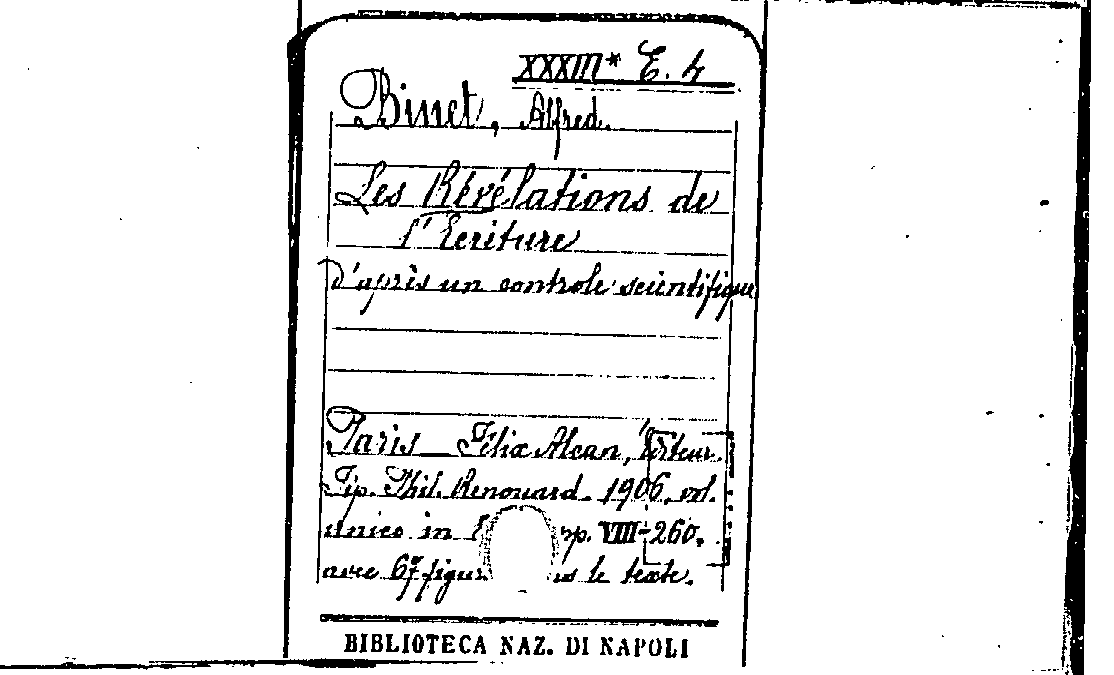 XXXIII* E. 4
Binet, Alfred.
Les Révélations de
l'Ecriture
d'après un controle scientifique
Paris Félix Alcan, Editeur.
Tip. Phil. Renouard. 1906. vol.
unico in pp. VIII-260.
avec 67 figur le texte.
BIBLIOTECA NAZ. DI NAPOLI